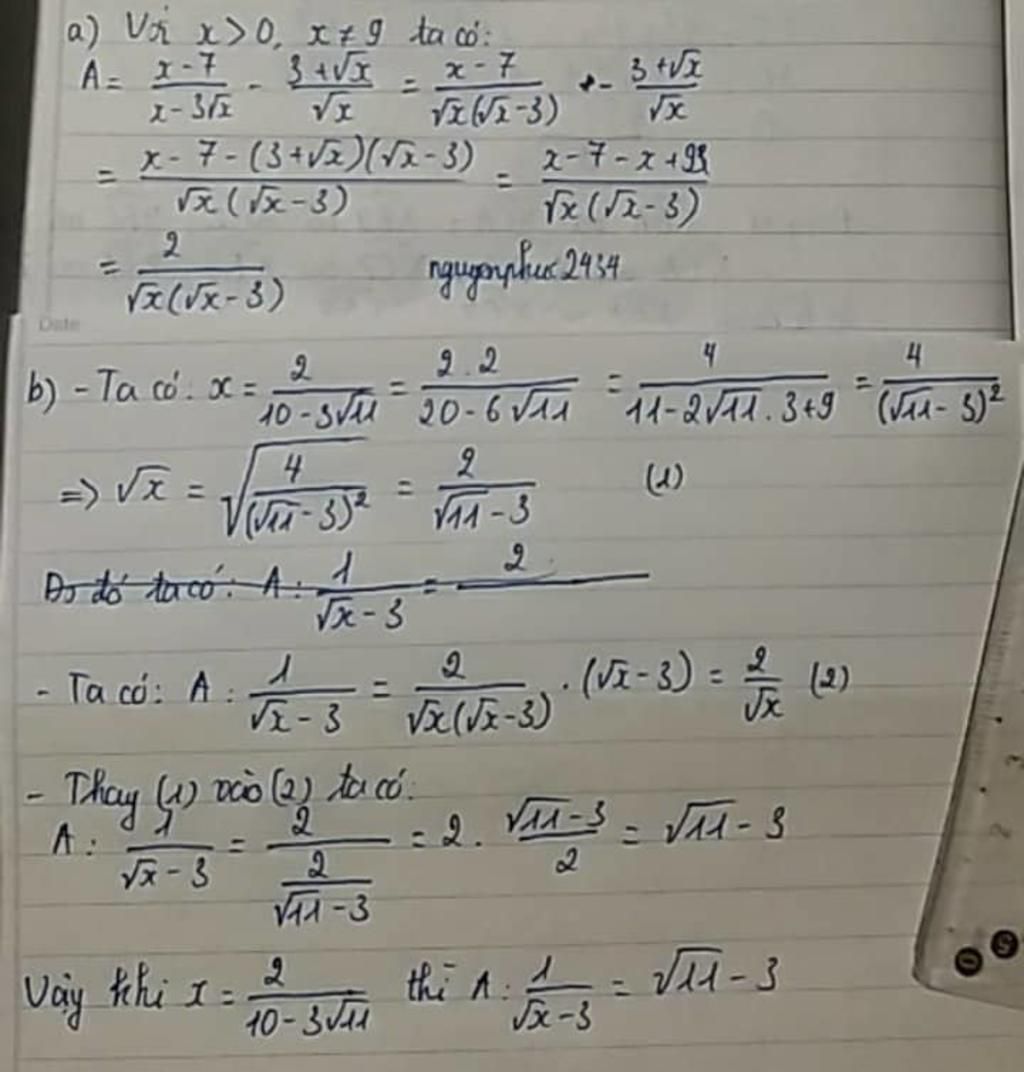 a) Với x > 0, x ≠ 9 ta có:
A = \frac{x-7}{x-3√x} - \frac{3+√x}{√x} = \frac{x-7}{√x(√x-3)} - \frac{3+√x}{√x}
= \frac{x-7-(3+√x)(√x-3)}{√x(√x-3)} = \frac{x-7-x+9}{√x(√x-3)}
= \frac{2}{√x(√x-3)} nguyenphuc2434
Date
b) - Ta có: x = \frac{2}{10-3√11} = \frac{2.2}{20-6√11} = \frac{4}{11-2√11.3+9} = \frac{4}{(√11-3)^2}
=> √x = \sqrt{\frac{4}{(√11-3)^2}} = \frac{2}{√11-3} (1)
Do đó ta có: A : \frac{1}{√x-3} = \frac{2}{}
- Ta có: A : \frac{1}{√x-3} = \frac{2}{√x(√x-3)} . (√x-3) = \frac{2}{√x} (2)
- Thay (1) vào (2) ta có:
A : \frac{1}{√x-3} = \frac{2}{\frac{2}{√11-3}} = 2 . \frac{√11-3}{2} = √11-3
Vậy khi x = \frac{2}{10-3√11} thì A : \frac{1}{√x-3} = √11-3